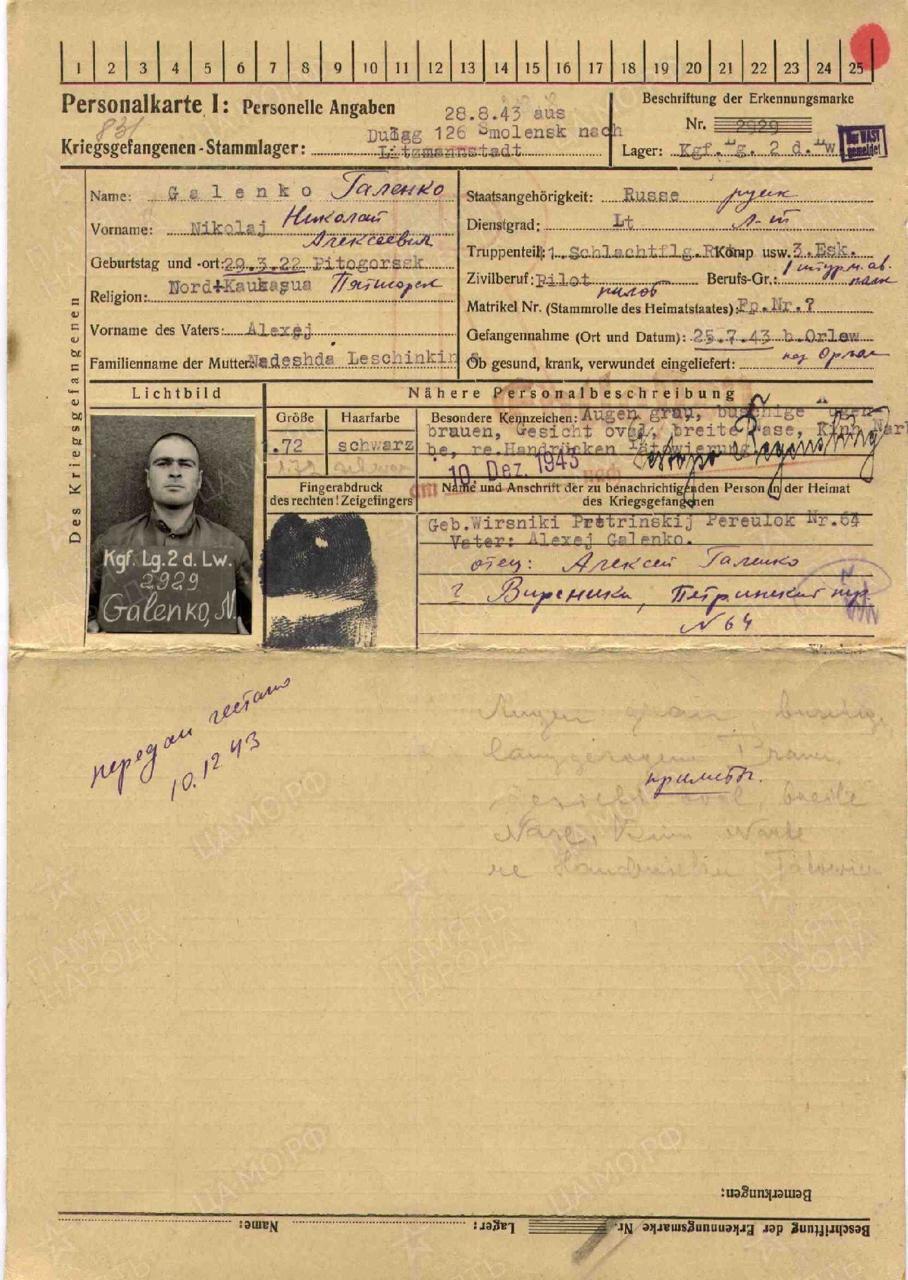 1 2 3 4 5 6 7 8 9 10 11 12 13 14 15 16 17 18 19 20 21 22 23 24 25
Personalkarte I: Personelle Angaben
831
28.8.43 aus
Dulag 126 Smolensk nach
Kriegsgefangenen-Stammlager: Litzmannstadt
Beschriftung der Erkennungsmarke
Nr. 2929
Lager: Kgf. Lg. 2 d. Lw.
Der WASt gemeldet
Des Kriegsgefangenen
Name: Galenko Галенко
Vorname: Nikolaj Николай
Алексеевич
Geburtstag und -ort: 29.3.22 Pitogorssk
Nord-Kaukasus Пятигорск
Religion:
Vorname des Vaters: Alexej
Familienname der Mutter: Nadeshda Leschinkin
Staatsangehörigkeit: Russe русск
Dienstgrad: Lt л-т
Truppenteil: 1. Schlachtflg. Komp usw. 3. Esk.
1 штурм. ав.
Zivilberuf: Pilot Berufs-Gr.:
Matrikel Nr. (Stammrolle des Heimatstaates): Fp.Nr.?
Gefangennahme (Ort und Datum): 25.7.43 b.Orlow
Ob gesund, krank, verwundet eingeliefert:
Lichtbild
Nähere Personalbeschreibung
Größe
Haarfarbe
1.72
schwarz
Besondere Kennzeichen: Augen grau, buschige Augen-
brauen, Gesicht oval, breite Nase, Kinn Nar
be, re.Handrücken Tätowierung
10. Dez. 1943
Fingerabdruck
des rechten! Zeigefingers
Name und Anschrift der zu benachrichtigenden Person in der Heimat
des Kriegsgefangenen
Geb.Wirsniki Pretrinskij Pereulok Nr.64
Vater: Alexej Galenko.
отец: Алексей Галенко
N 64
Kgf. Lg. 2 d. Lw.
2929
Galenko, N.
передан гестапо
10.12 43
приметы.
Nase, Kinn Narbe
Bemerkungen:
Beschriftung der Erkennungsmarke Nr. Lager: Name:
ПАМЯТЬ НАРОДА
ЦАМО.РФ